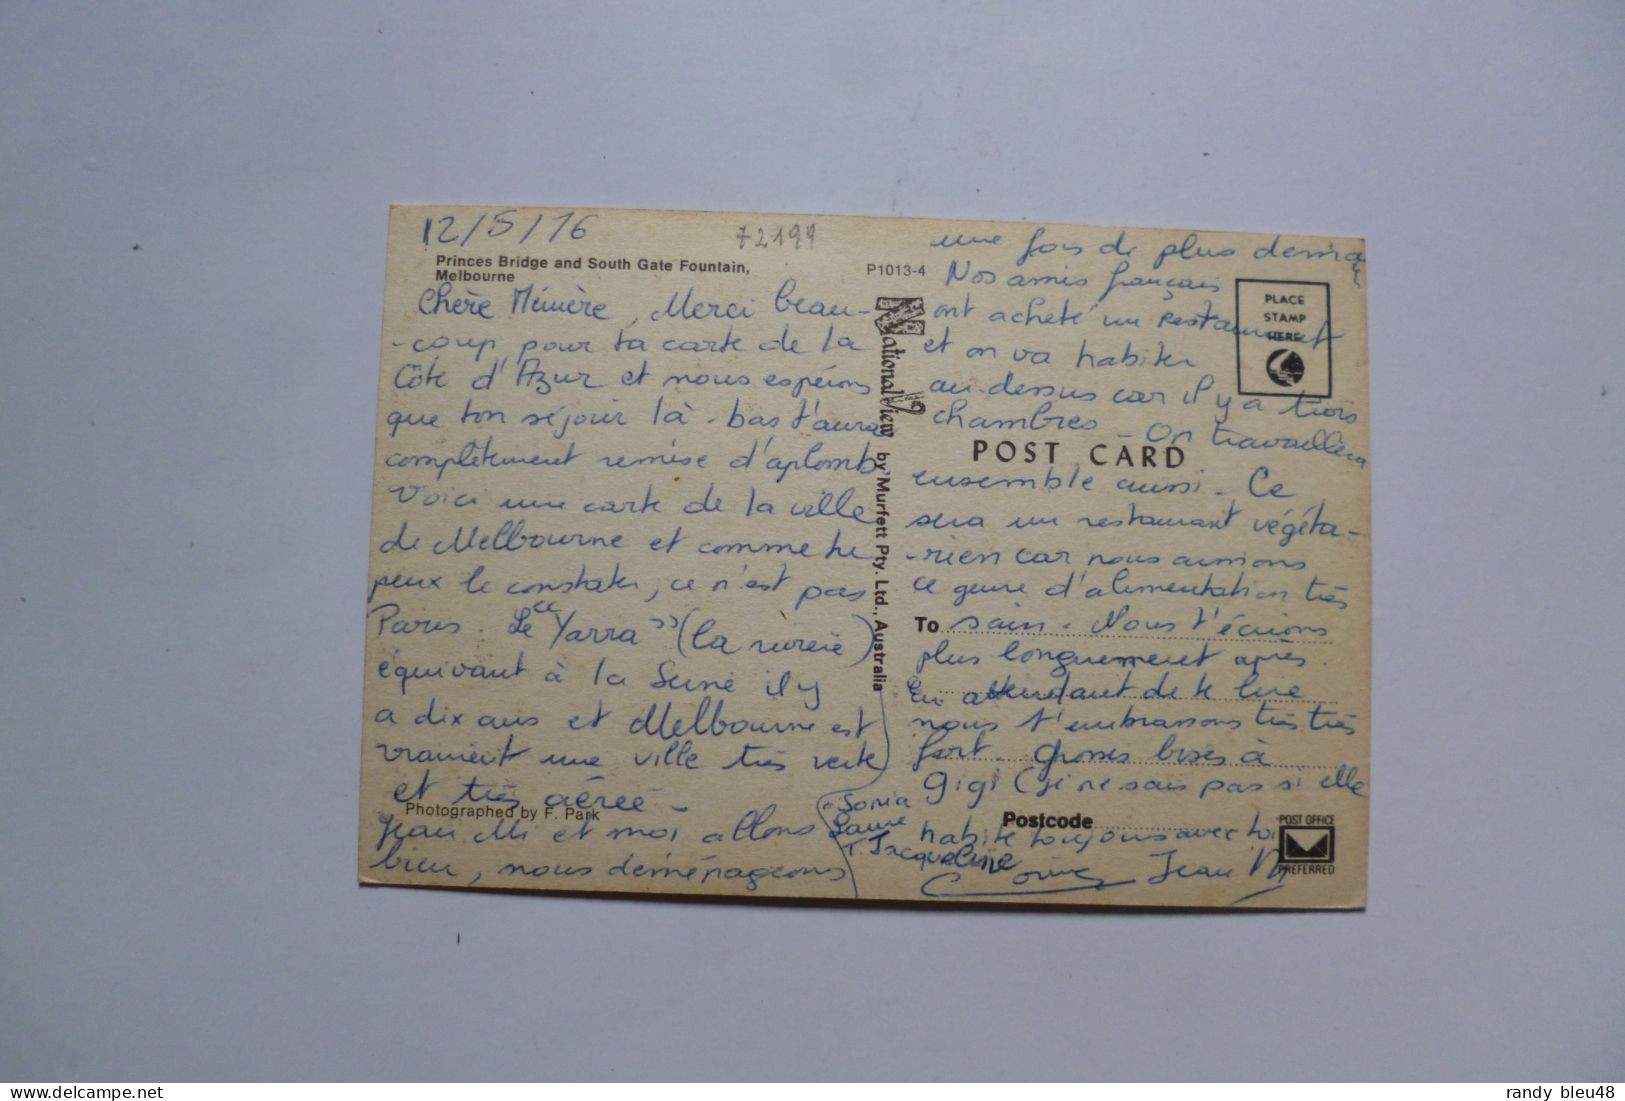 12/5/76
72199
Princes Bridge and South Gate Fountain,
Melbourne
Chère Mémère, Merci beau-
-coup pour ta carte de la
Côte d'Azur et nous espérons
que ton séjour là-bas t'aura
complètement remise d'aplomb
Voici une carte de la ville
de Melbourne et comme tu
peux le constater, ce n'est pas
Paris. Le "Yarra" (la rivière)
équivaut à la Seine il y
a dix ans et Melbourne est
vraiment une ville très verte
et très aérée -
Photographed by F. Park
Jean Mi et moi allons
bien, nous déménageons
P1013-4
National View by Murfett Pty. Ltd., Australia
une fois de plus demain
Nos amis français
ont acheté un restaurant
et on va habiter
au dessus car il y a trois
chambres - On travaillera
PLACE
STAMP
HERE
POST CARD
ensemble aussi - Ce
sera un restaurant végéta-
-rien car nous aimons
ce genre d'alimentation très
To
sain. Nous t'écrirons
plus longuement après.
En attendant de te lire
nous t'embrassons très très
fort. Grosses bises à
gigi (je ne sais pas si elle
habite toujours avec toi
Sonia
Laure
Jacqueline
Postcode
Jean M
POST OFFICE
PREFERRED
randy bleu48